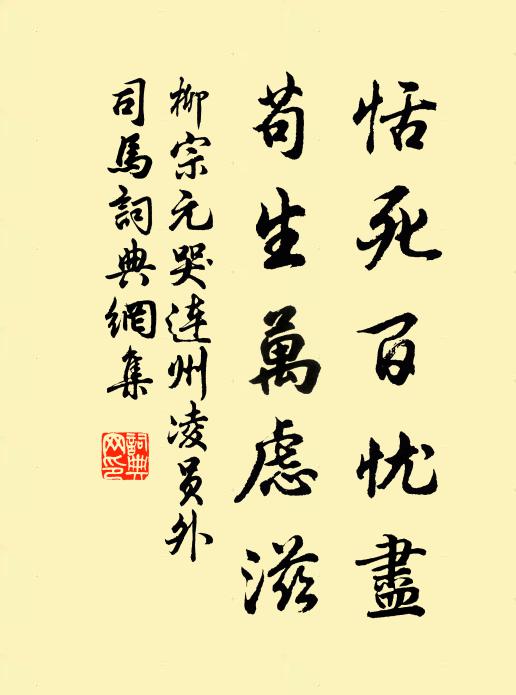 恬死百忧盡
苟生萬慮滋
柳宗元哭連州凌員外
司馬詞典網集
詞典网印